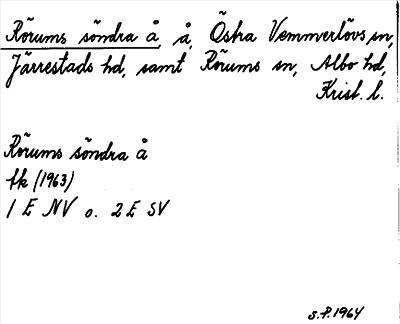 Rörums söndra å, å, Östra Vemmerlövs sn,
Järrestads hd, samt Rörums sn, Albo hd,
Krist. l.
Rörums söndra å
fk (1963)
1 E NV o. 2 E SV
S.P. 1964